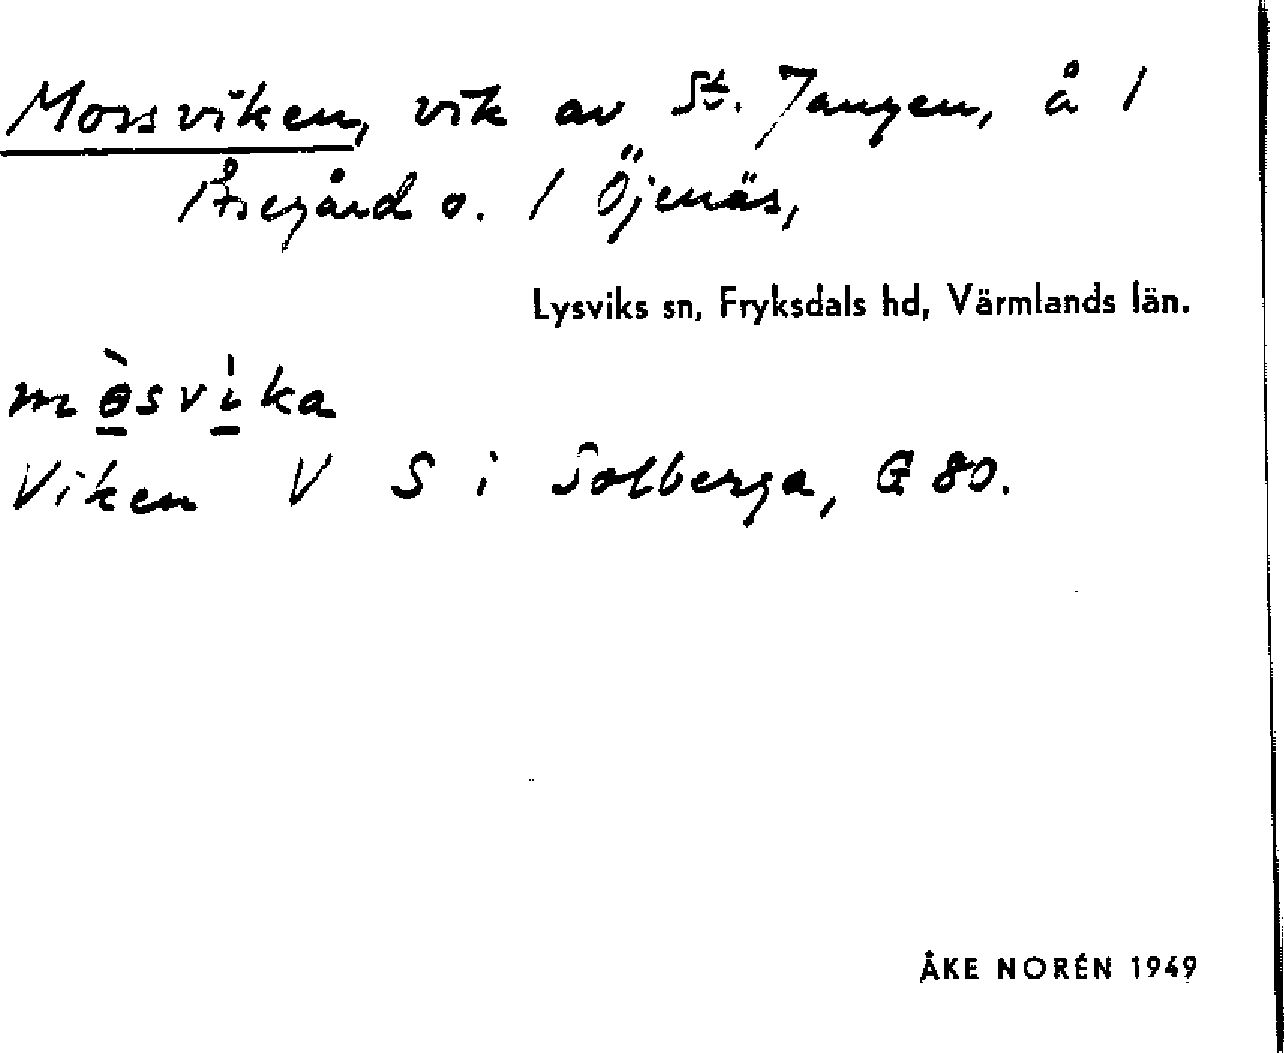 Mossviken, vik av St. Tangen, å 1
Åsegård o. 1 Öjenäs,
Lysviks sn, Fryksdals hd, Värmlands län.
mòsvìka
Viken V S i Solberga, G 80.
ÅKE NORÉN 1949